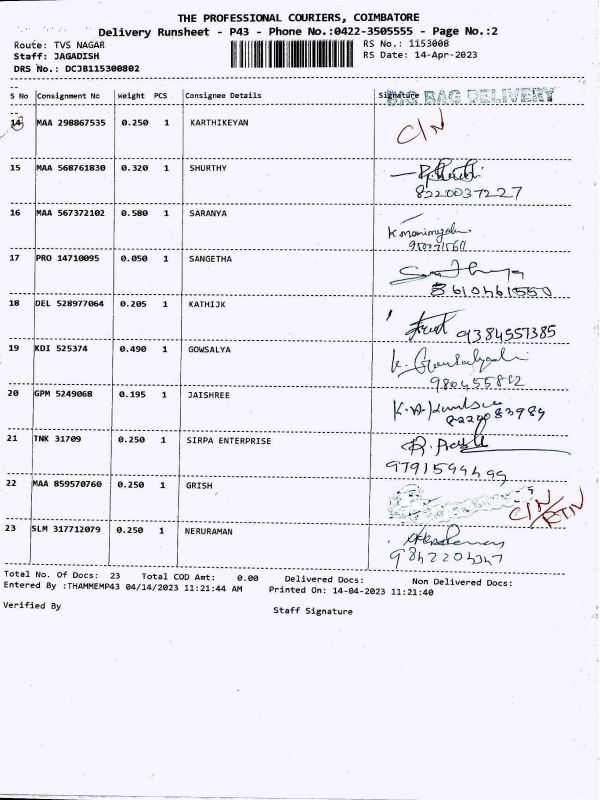 THE PROFESSIONAL COURIERS, COIMBATORE
Delivery Runsheet - P43 - Phone No.:0422-3505555 - Page No.:2
Route: TVS NAGAR
RS No.: 1153008
Staff: JAGADISH
RS Date: 14-Apr-2023
DRS No.: DCJB115300802
S No Consignment No Weight PCS Consignee Details Signature
BIG BAG DELIVERY
14 MAA 298867535 0.250 1 KARTHIKEYAN
C/N
15 MAA 568761830 0.320 1 SHURTHY
8220037227
16 MAA 567372102 0.580 1 SARANYA
17 PRO 14710095 0.050 1 SANGETHA
8610461550
18 DEL 528977064 0.205 1 KATHIJK
9384551385
19 KDI 525374 0.490 1 GOWSALYA
20 GPM 5249068 0.195 1 JAISHREE
21 TNK 31709 0.250 1 SIRPA ENTERPRISE
9791594499
22 MAA 859570760 0.250 1 GRISH
C/N
RTN
23 SLM 317712079 0.250 1 NERURAMAN
9842204347
Total No. Of Docs: 23 Total COD Amt: 0.00 Delivered Docs: Non Delivered Docs:
Entered By :THAMMEMP43 04/14/2023 11:21:44 AM Printed On: 14-04-2023 11:21:40
Verified By
Staff Signature